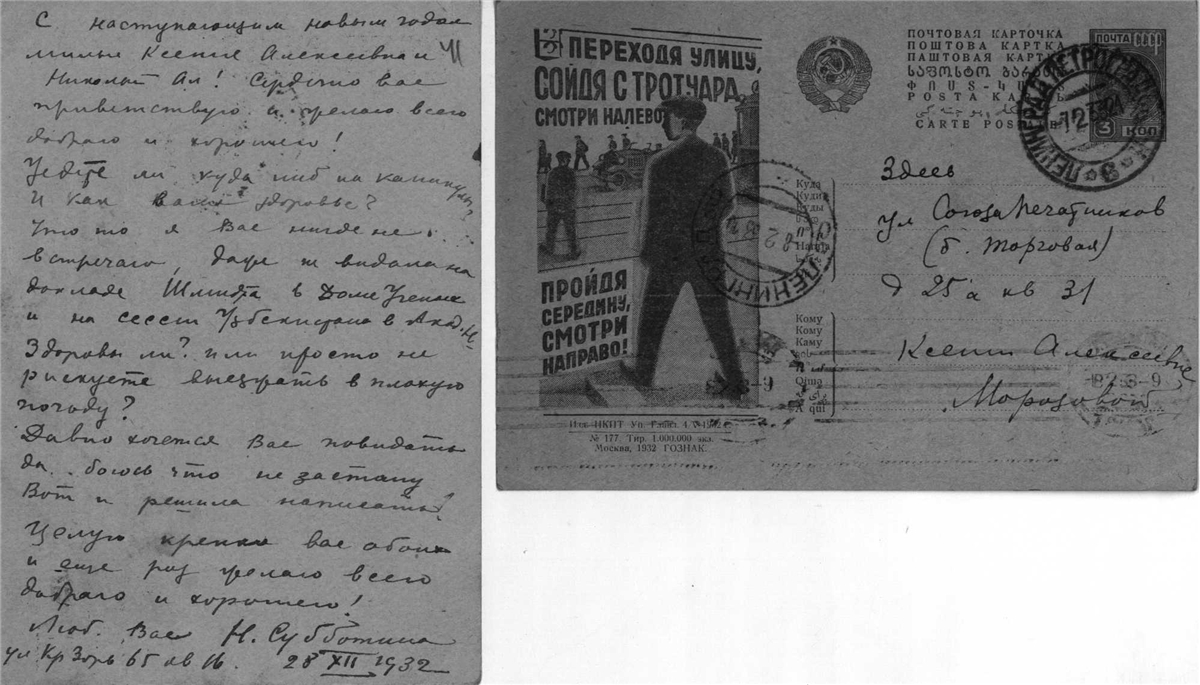 С наступающим новым годом
милые Ксения Алексеевна и
Николай Ал! Сердечно вас
приветствую и желаю всего
добраго и хорошего!
Уедете ли куда либ на каникулы?
И как ваше здоровье?
Что то я Вас нигде не
встречаю, даже не видала на
докладе Шмидта в Доме Ученых
и на сессии Узбекистана в Акад. Н.
Здоровы ли? или просто не
рискуете выезжать в плохую
погоду?
Давно хочется Вас повидать
да боюсь что не застану
Вот и решила написать!
Целую крепко вас обоих
и еще раз желаю всего
добраго и хорошего!
Люб. Вас Н. Субботина
ул Кр Зорь 65 кв 16. 28 XII 1932
ПЕРЕХОДЯ УЛИЦУ,
СОЙДЯ С ТРОТУАРА,
СМОТРИ НАЛЕВО
ПРОЙДЯ
СЕРЕДИНУ,
СМОТРИ
НАПРАВО!
№ 177. Тир. 1.000.000 экз.
Москва, 1932 ГОЗНАК.
ПОЧТОВАЯ КАРТОЧКА
ПОШТОВА КАРТКА
ПАШТОВАЯ КАРТКА
САФОСТО
POSTA
CARTE POSTALE
ПОЧТА СССР
3 КОП
ЛЕНИНГРАД
ЛЕНИНГРАД
Куда
Кому
Кому
Каму
A qui
Здесь
ул Союза Печатников
(б. Торговая)
д 25а кв 31
Ксении Алексеевне
Морозовой